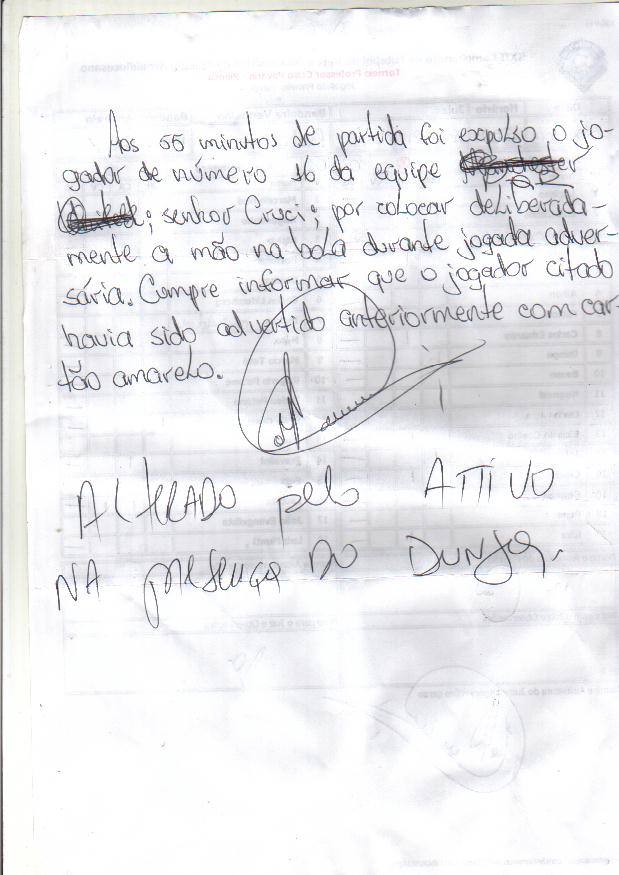 Aos 55 minutos de partida foi expulso o jo-
gador de número 16 da equipe
; senhor Cruci; por colocar deliberada-
mente a mão na bola durante jogada adver-
sária. Cumpre informar que o jogador citado
havia sido advertido anteriormente com car-
tão amarelo.
ALTERADO pelo ATTIVO
NA presença DO DUNGA.